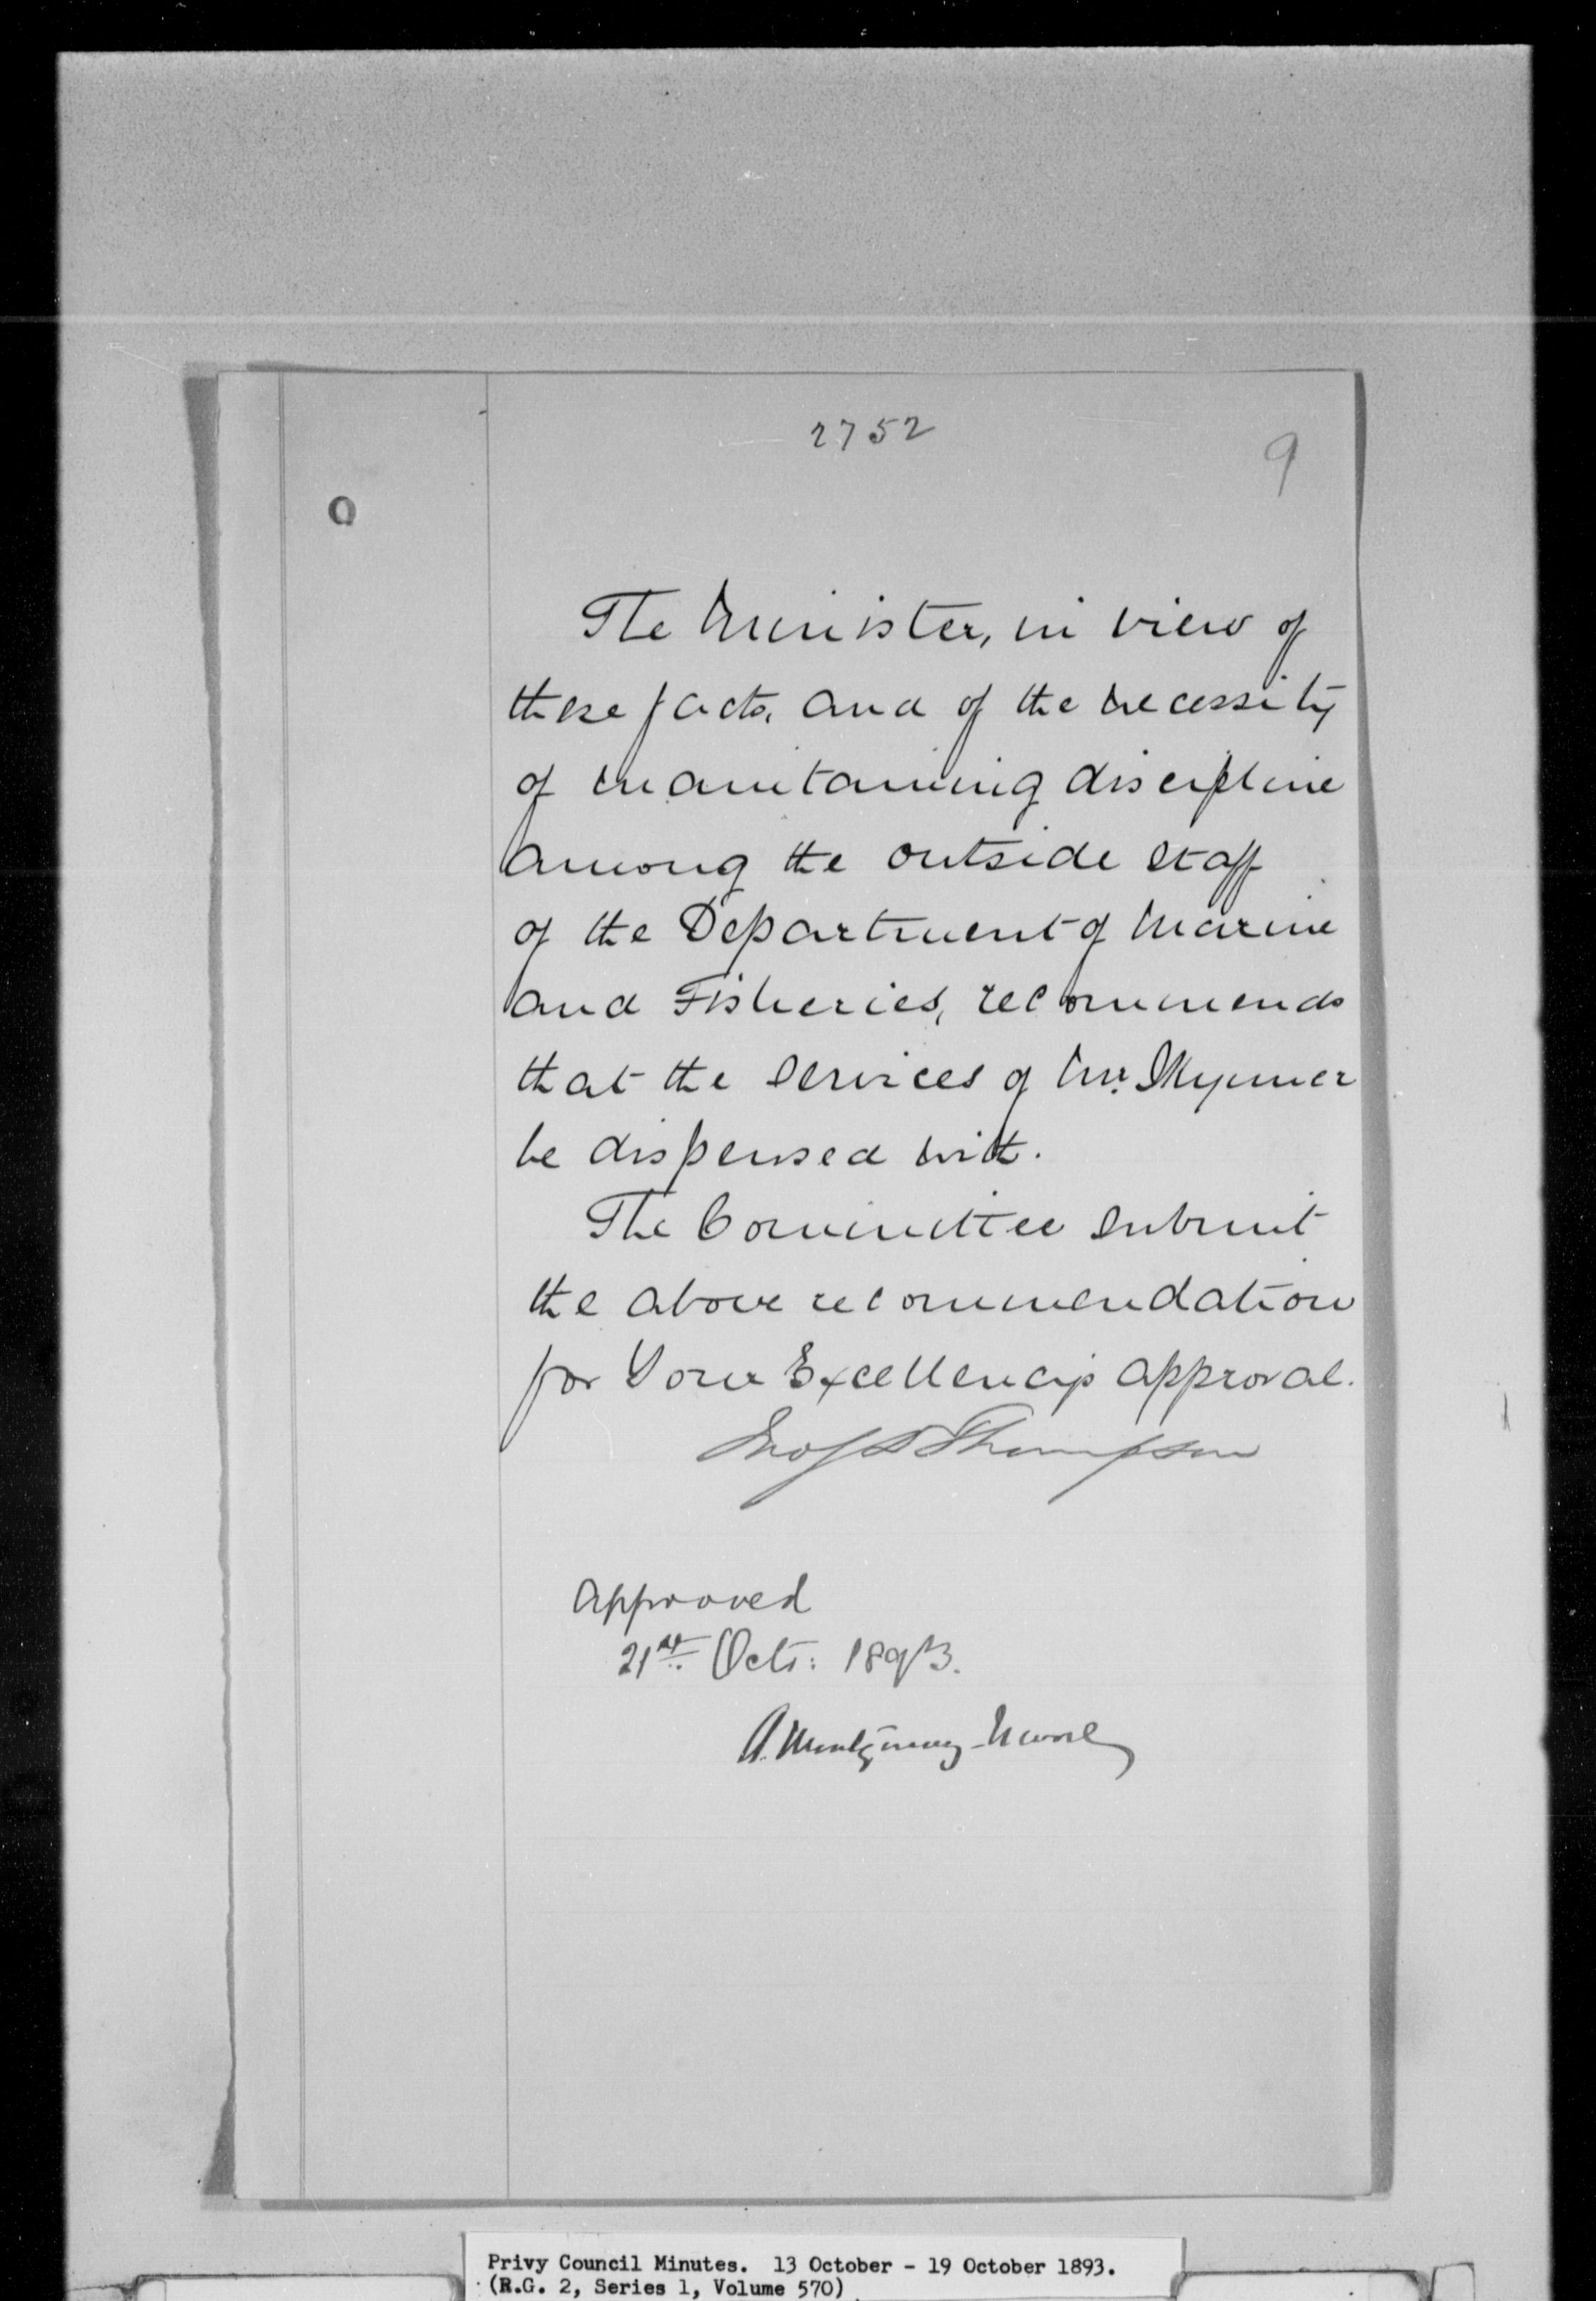 2752
9
The Minister, in view of
these facts, and of the necessity
of maintaining discipline
among the outside staff
of the Department of Marine
and Fisheries, recommends
that the services of Mr. Skynner
be dispensed with.
The Committee submit
the above recommendation
for Your Excellency's approval.
Jno S D Thompson
Approved
21st Oct: 1893.
A. Montgomery-Moore
Privy Council Minutes. 13 October - 19 October 1893.
(R.G. 2, Series 1, Volume 570)